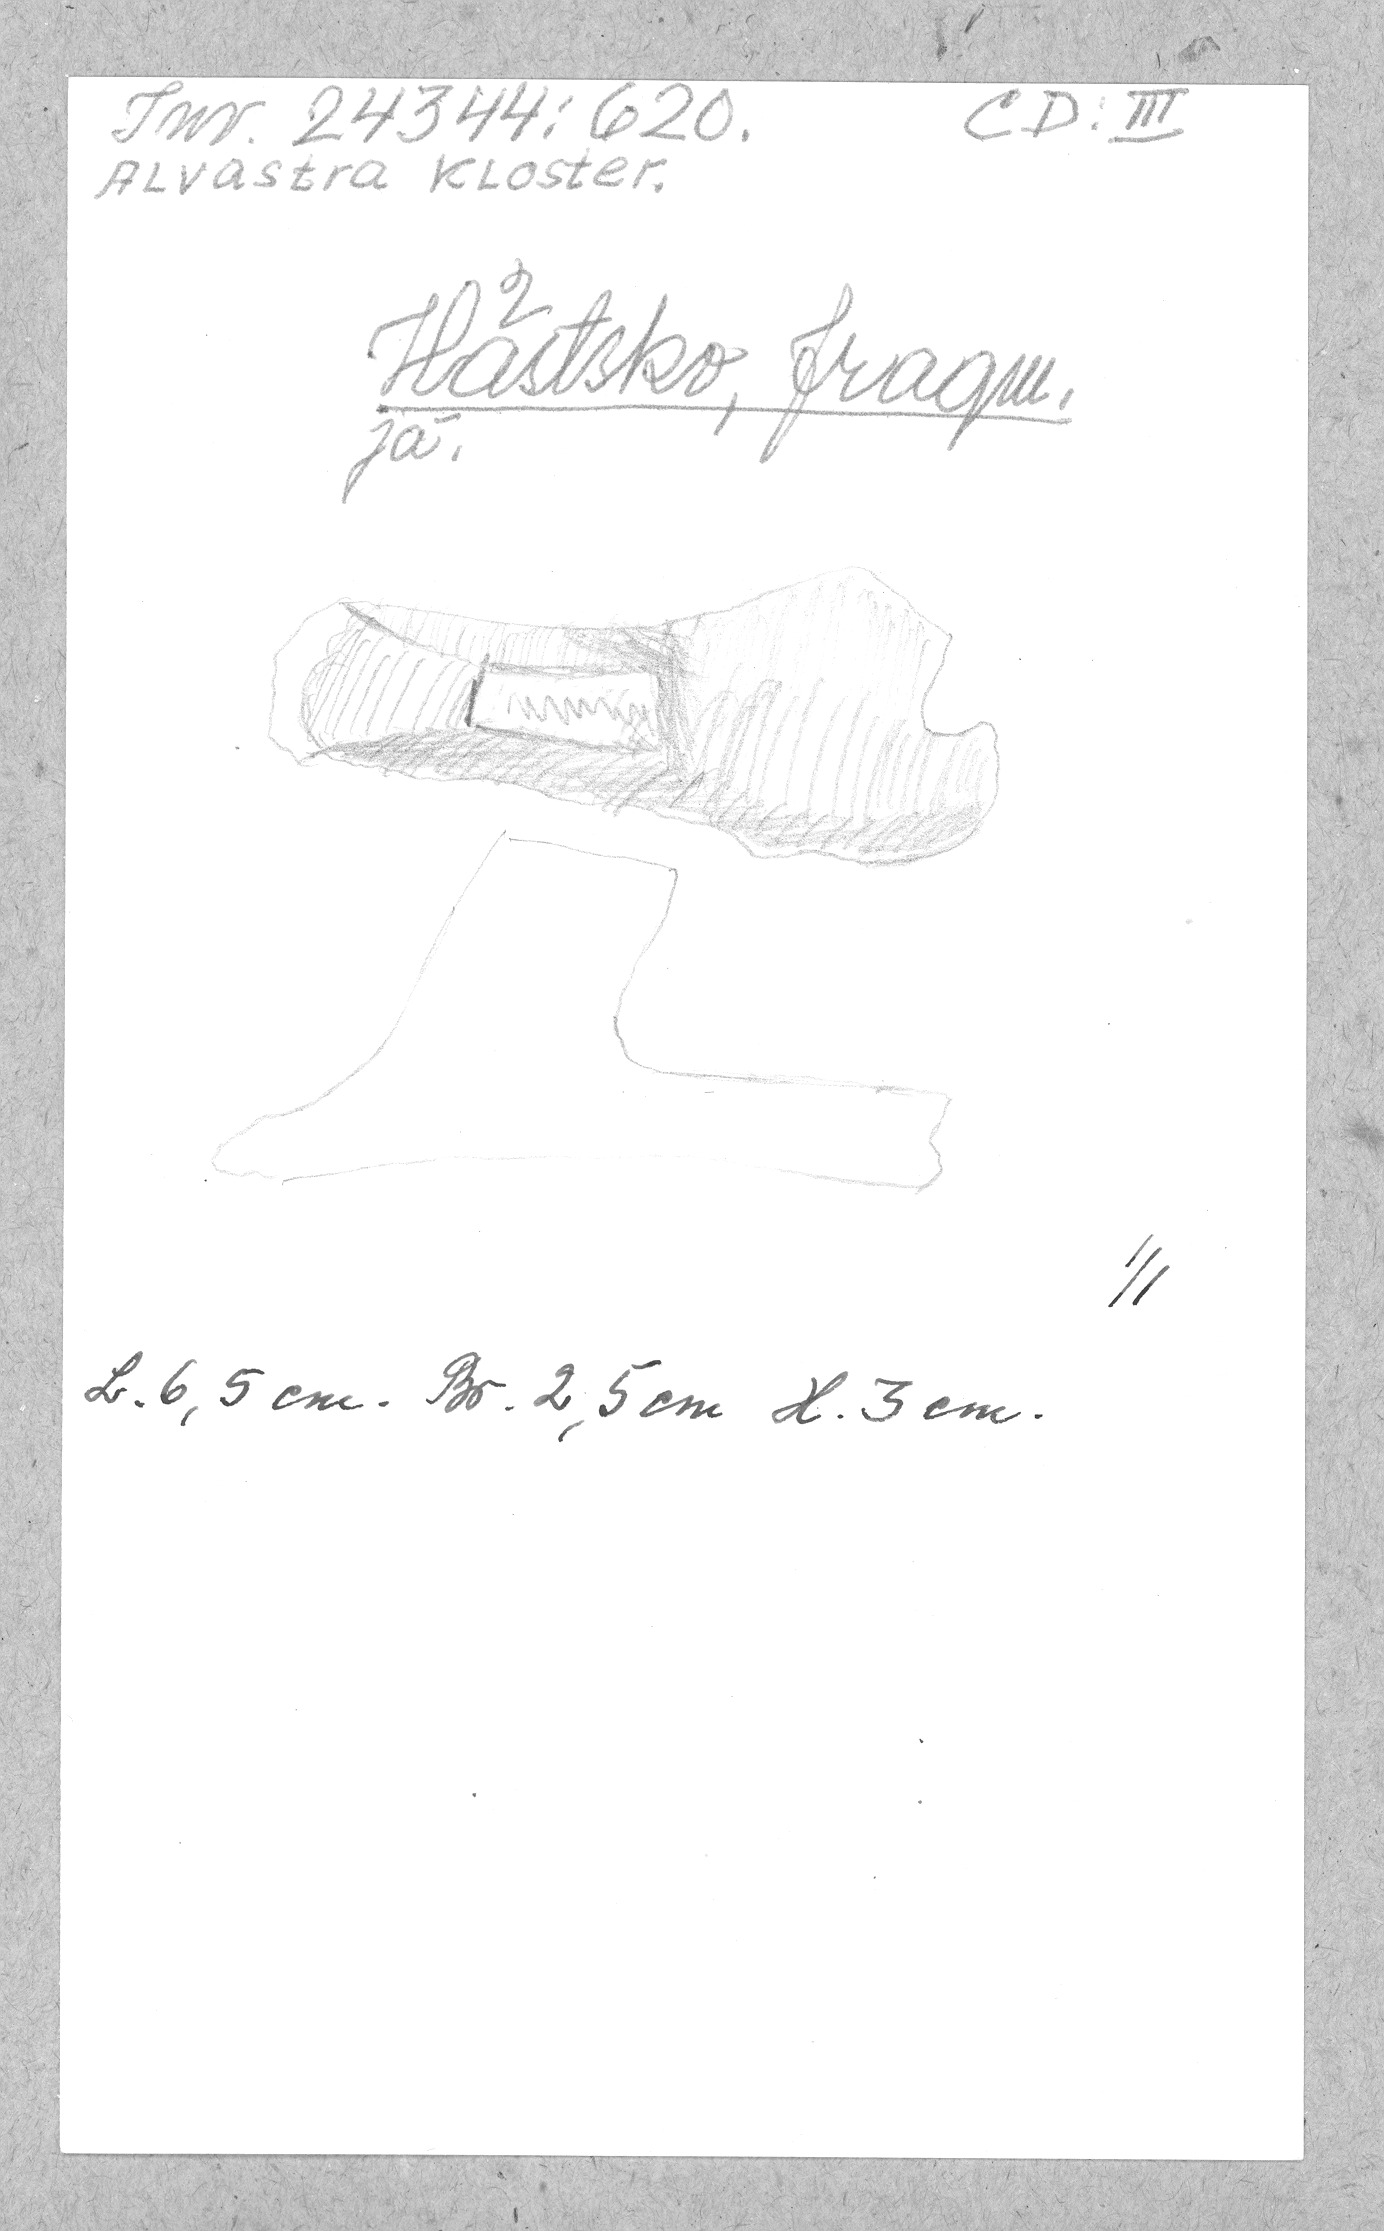 Inv. 24344:620. CD: III
Alvastra Kloster.
Hästsko, fragm.
jä.
1/1
L. 6,5 cm. Br. 2,5 cm H. 3 cm.